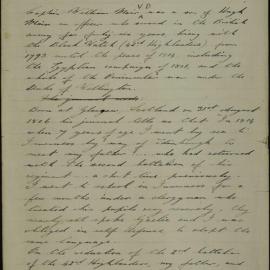 Captain William Mair, V.D. was a son of Hugh
Mair an officer who served in the British
army for fifty six years, being with
the Black Watch (42nd Highlanders) from
1793 until the peace of 1814, including
the Egyptian campaigns of 1801, and the
whole of the Peninsular war under the
Duke of Wellington.
Born at Glasgow, Scotland on 31st August
1806 his journal tells us that In 1814
when 7 years of age I went by sea to
Inverness by way of Edinburgh to
meet my father who had returned
with the second battalion of his
regiment a short time previously.
I went to school in Inverness for a
few months under a clergyman who
treated his pupils very severely; they
nearly all spoke Gaelic and I was
obliged in self defence to adopt the
same language.
On the reduction of the 2nd battalion
of the 42nd Highlanders, my father, and